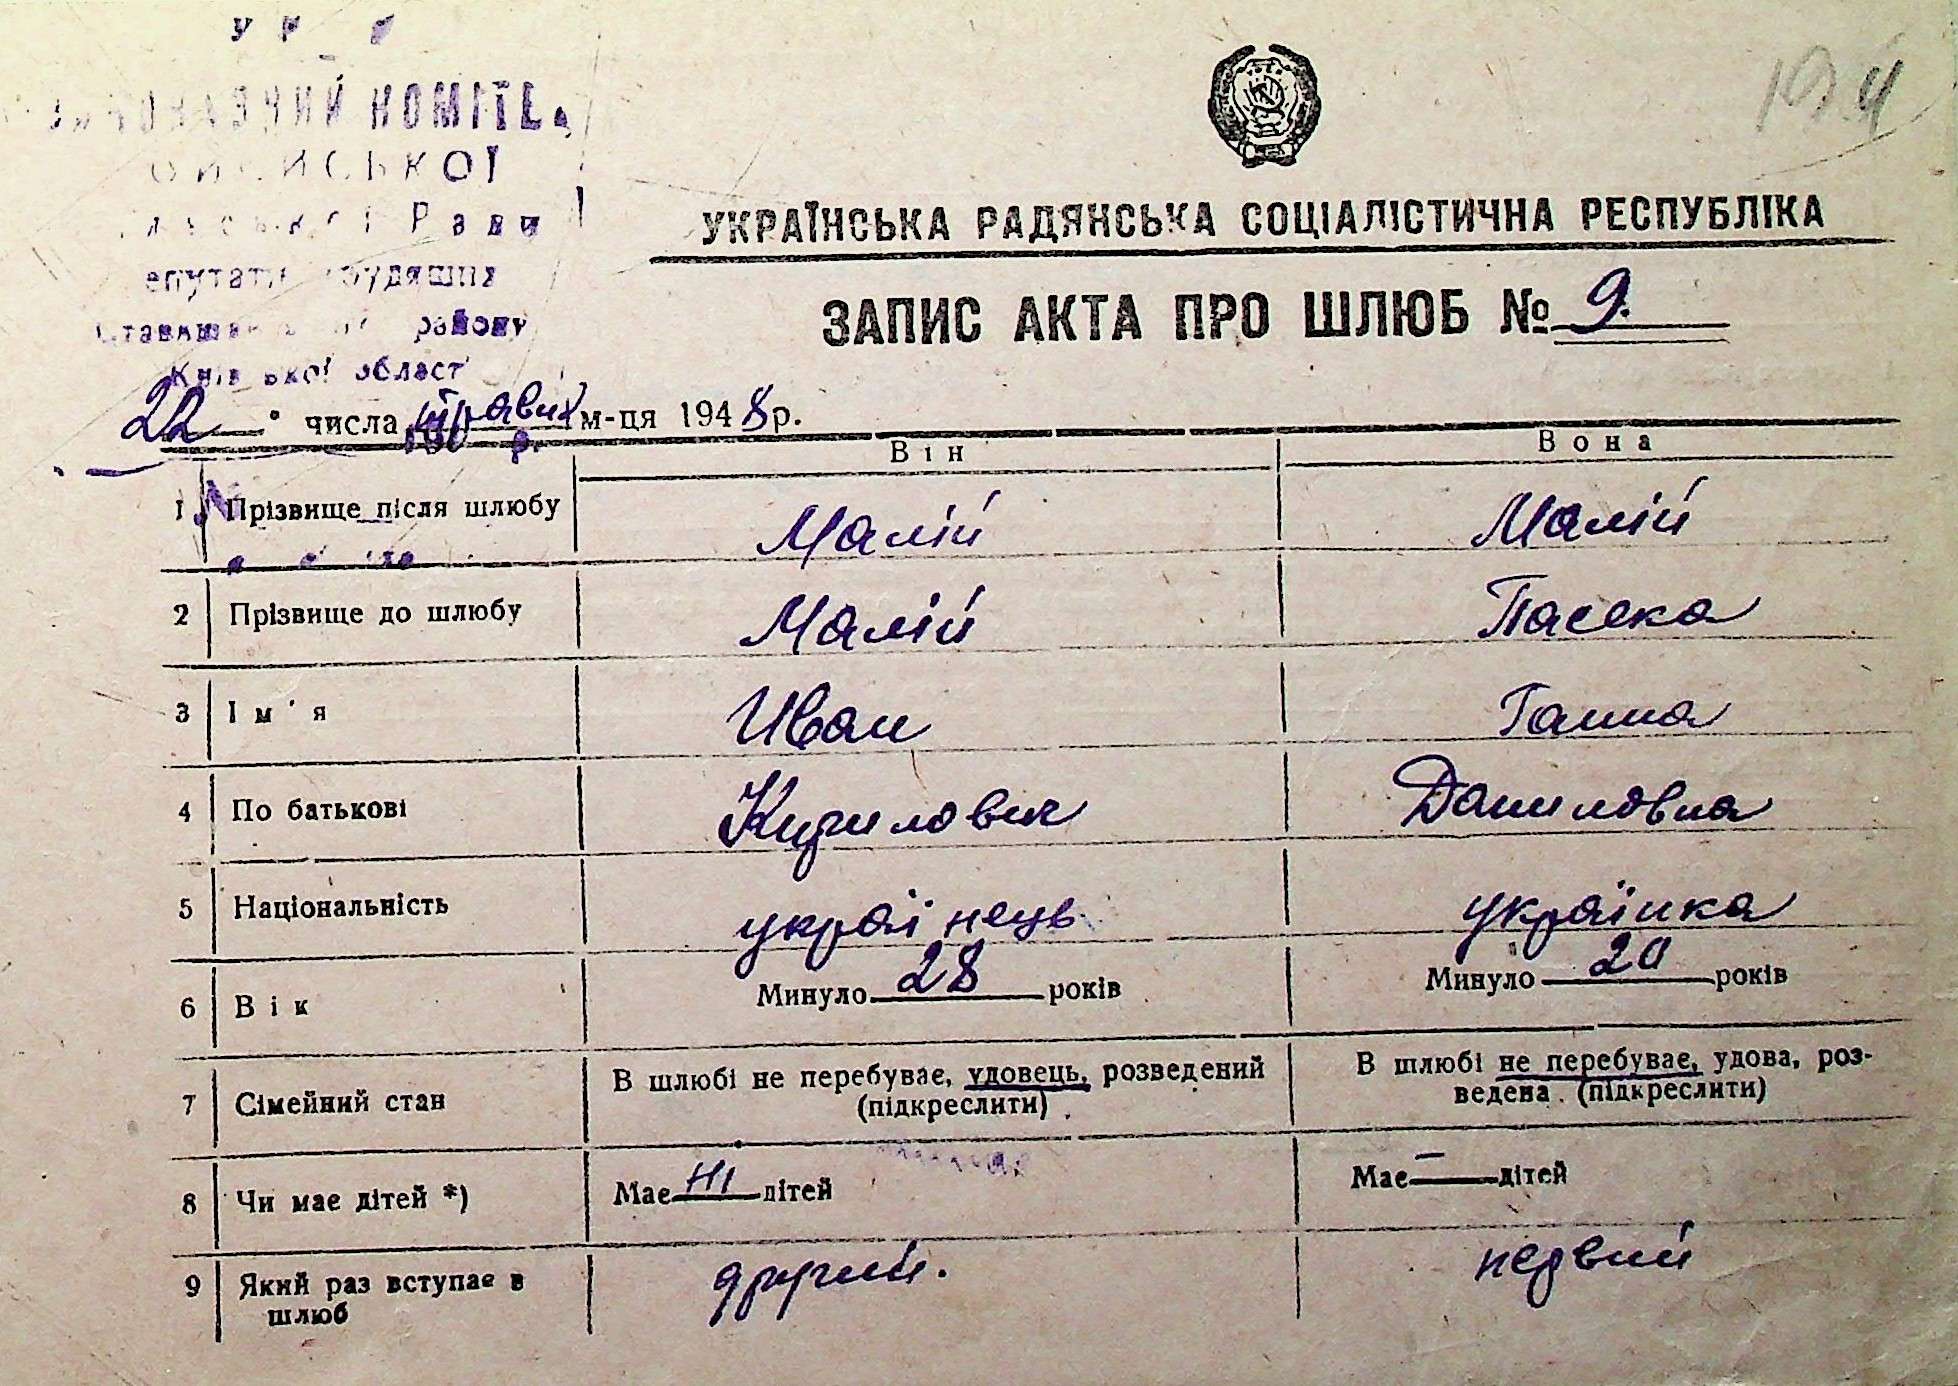 КОМІТЕ
ської Ради
району
області
УКРАЇНСЬКА РАДЯНСЬКА СОЦІАЛІСТИЧНА РЕСПУБЛІКА
ЗАПИС АКТА ПРО ШЛЮБ № 9.
22 числа травня м-ця 1948 р.
Він Вона
1 Прізвище після шлюбу Малій Малій
2 Прізвище до шлюбу Малій Пасека
3 Ім'я Иван Ганна
4 По батькові Кирилович Даниловна
5 Національність українець українка
6 Вік Минуло 28 років Минуло 20 років
7 Сімейний стан В шлюбі не перебуває, удовець, розведений (підкреслити) В шлюбі не перебуває, удова, роз-
ведена (підкреслити)
8 Чи має дітей *) Має ні дітей Має — дітей
9 Який раз вступає в шлюб другий. первий